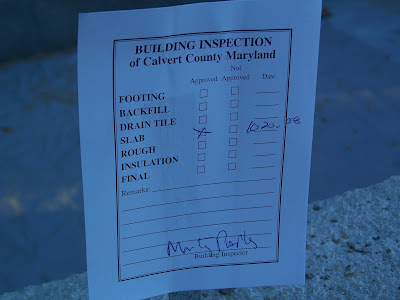 BUILDING INSPECTION
of Calvert County Maryland
Not
Approved Approved Date
FOOTING
BACKFILL
DRAIN TILE
SLAB X 10-20-08
ROUGH
INSULATION
FINAL
Remarks:
Building Inspector